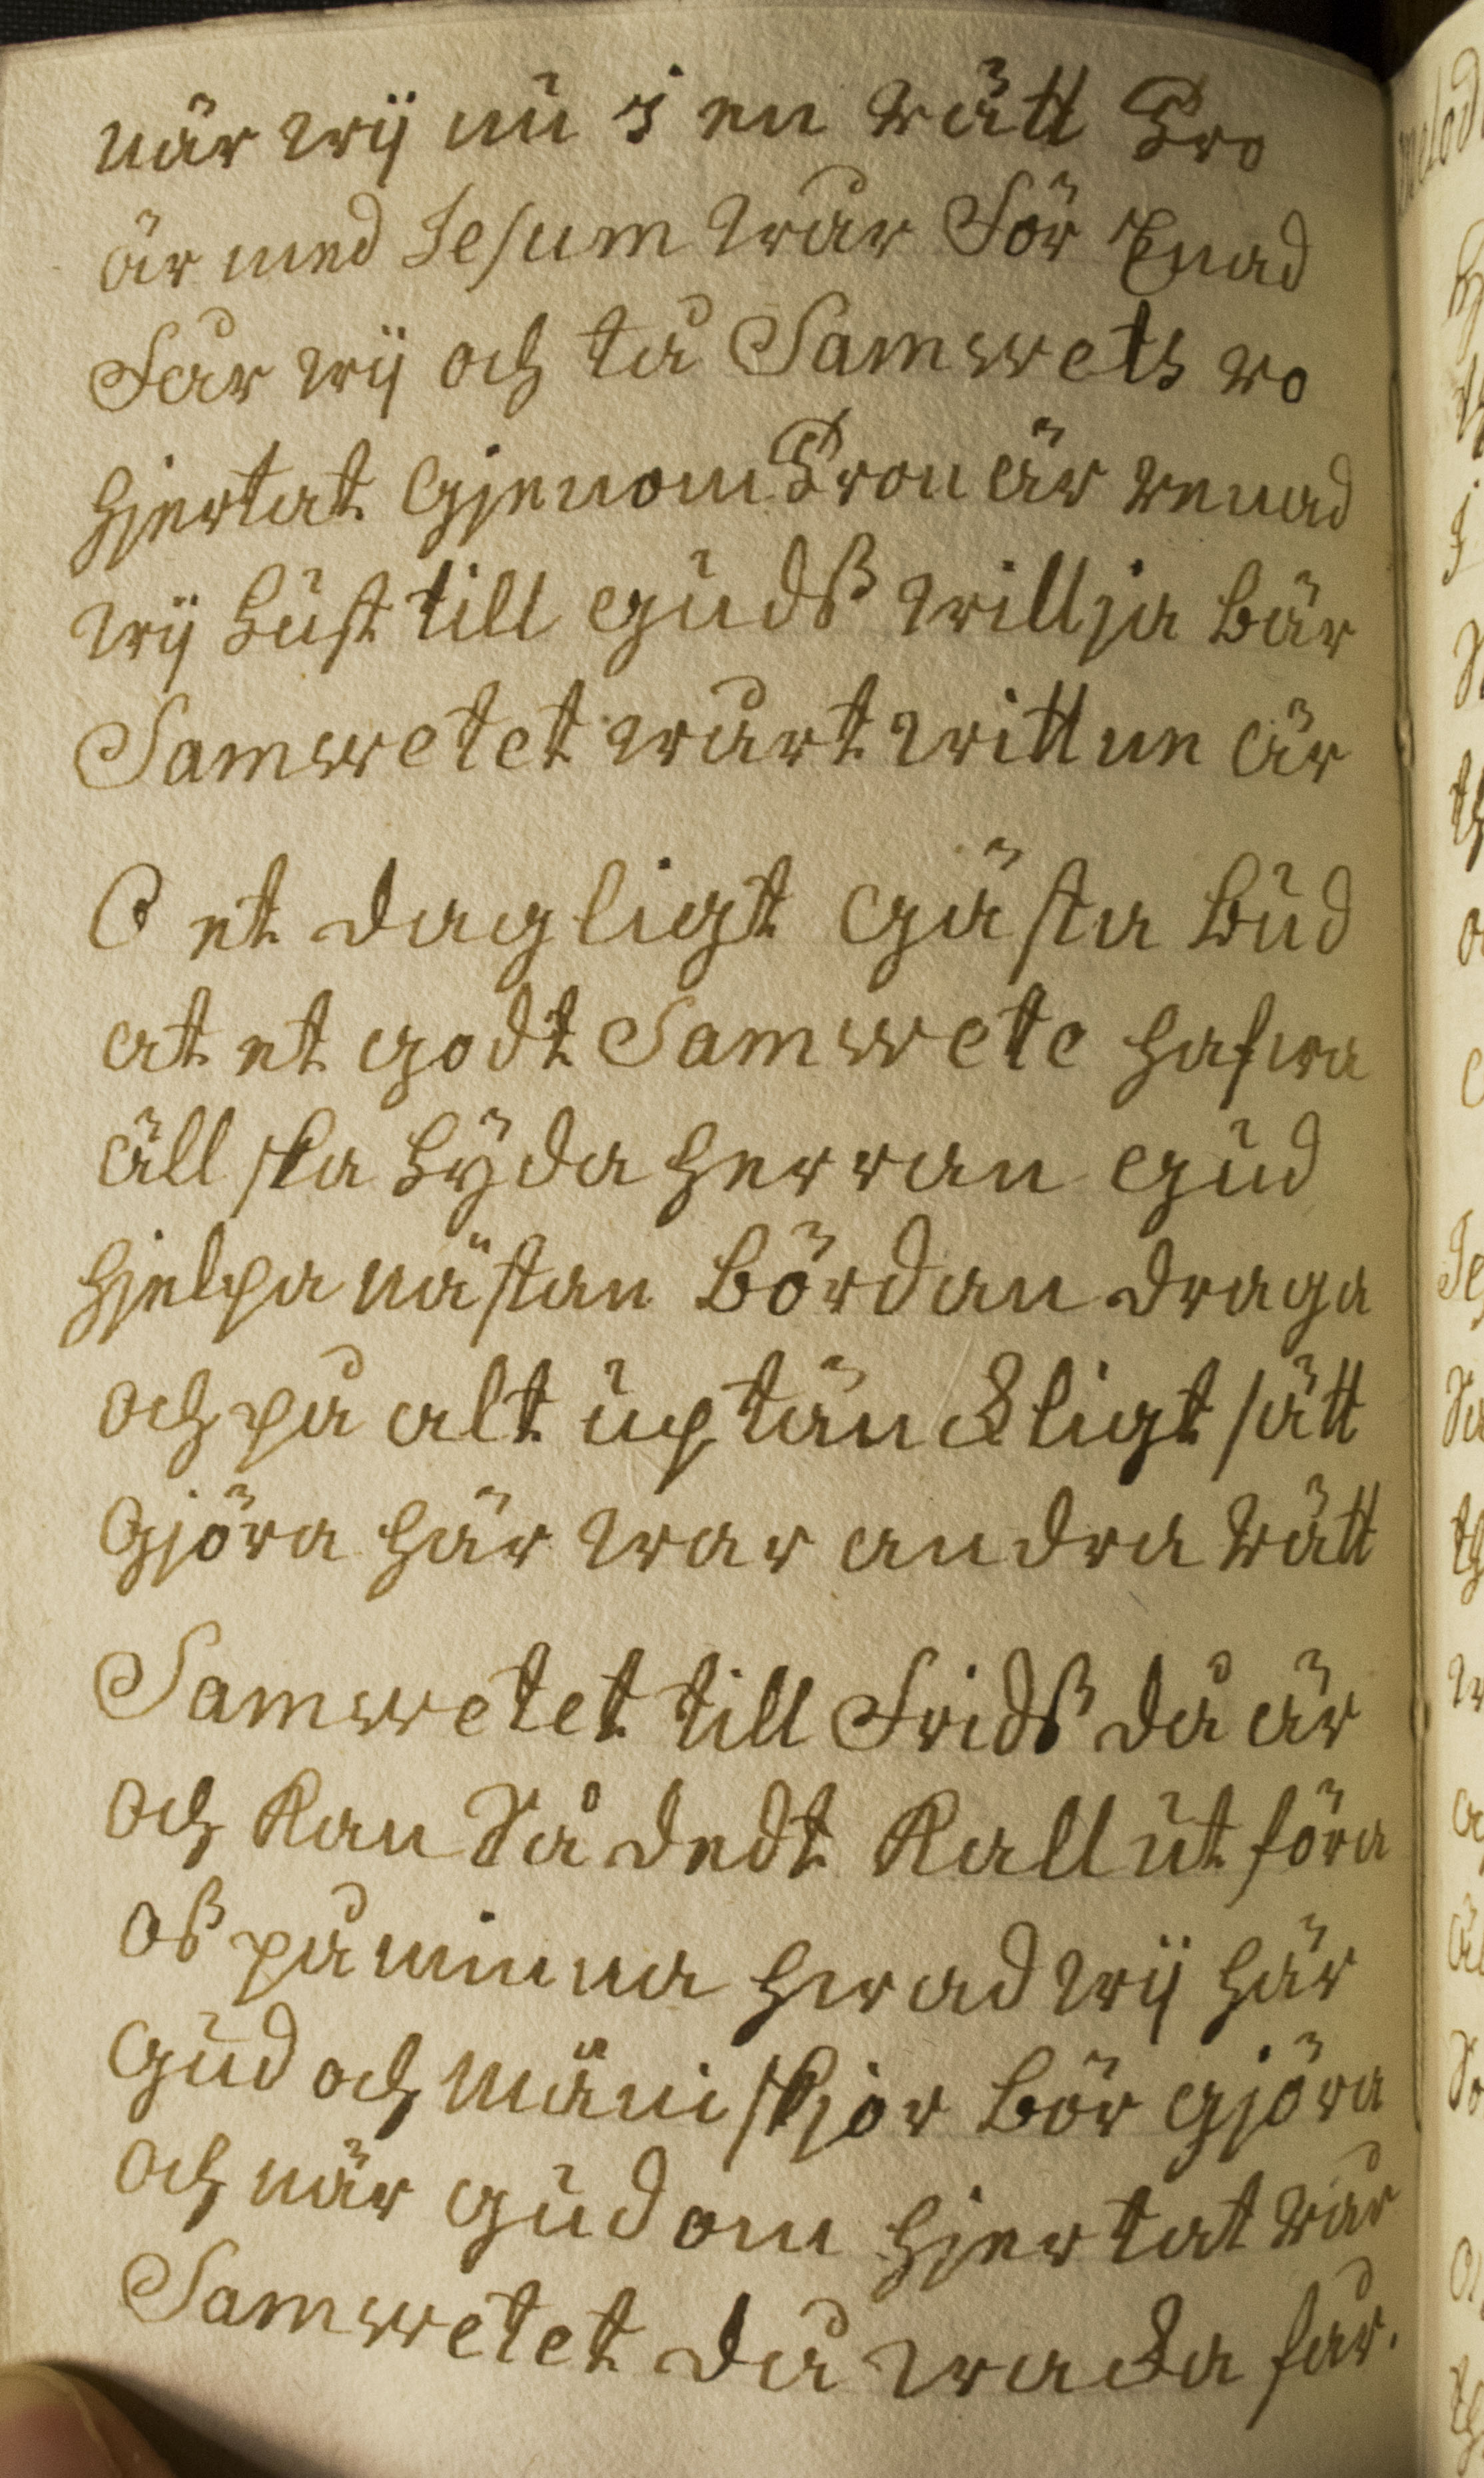 när wij nu i en Rätt Tro
är med Jesum wår För Enad
Får wij och tå Samwets ro
hjertat Gjenom Tron är renad
wij Lust till Gudß willja bär
Samwetet wårt wittne är
O et dagligt Gästa Bud
at et godt Samwete hafwa
älska Lyda herran Gud
hjelpa nästan Bördan draga
och på alt uptänckligt sätt
Gjöra här war andra Rätt
Samwetet till Fridß då är
och Kan Så dedt Kall ut föra
oß påminna hwad wij här
Gud och Mäniskjor Bör Gjöra
och när Gud om hjertat Rår
Samwetet då wacka får.